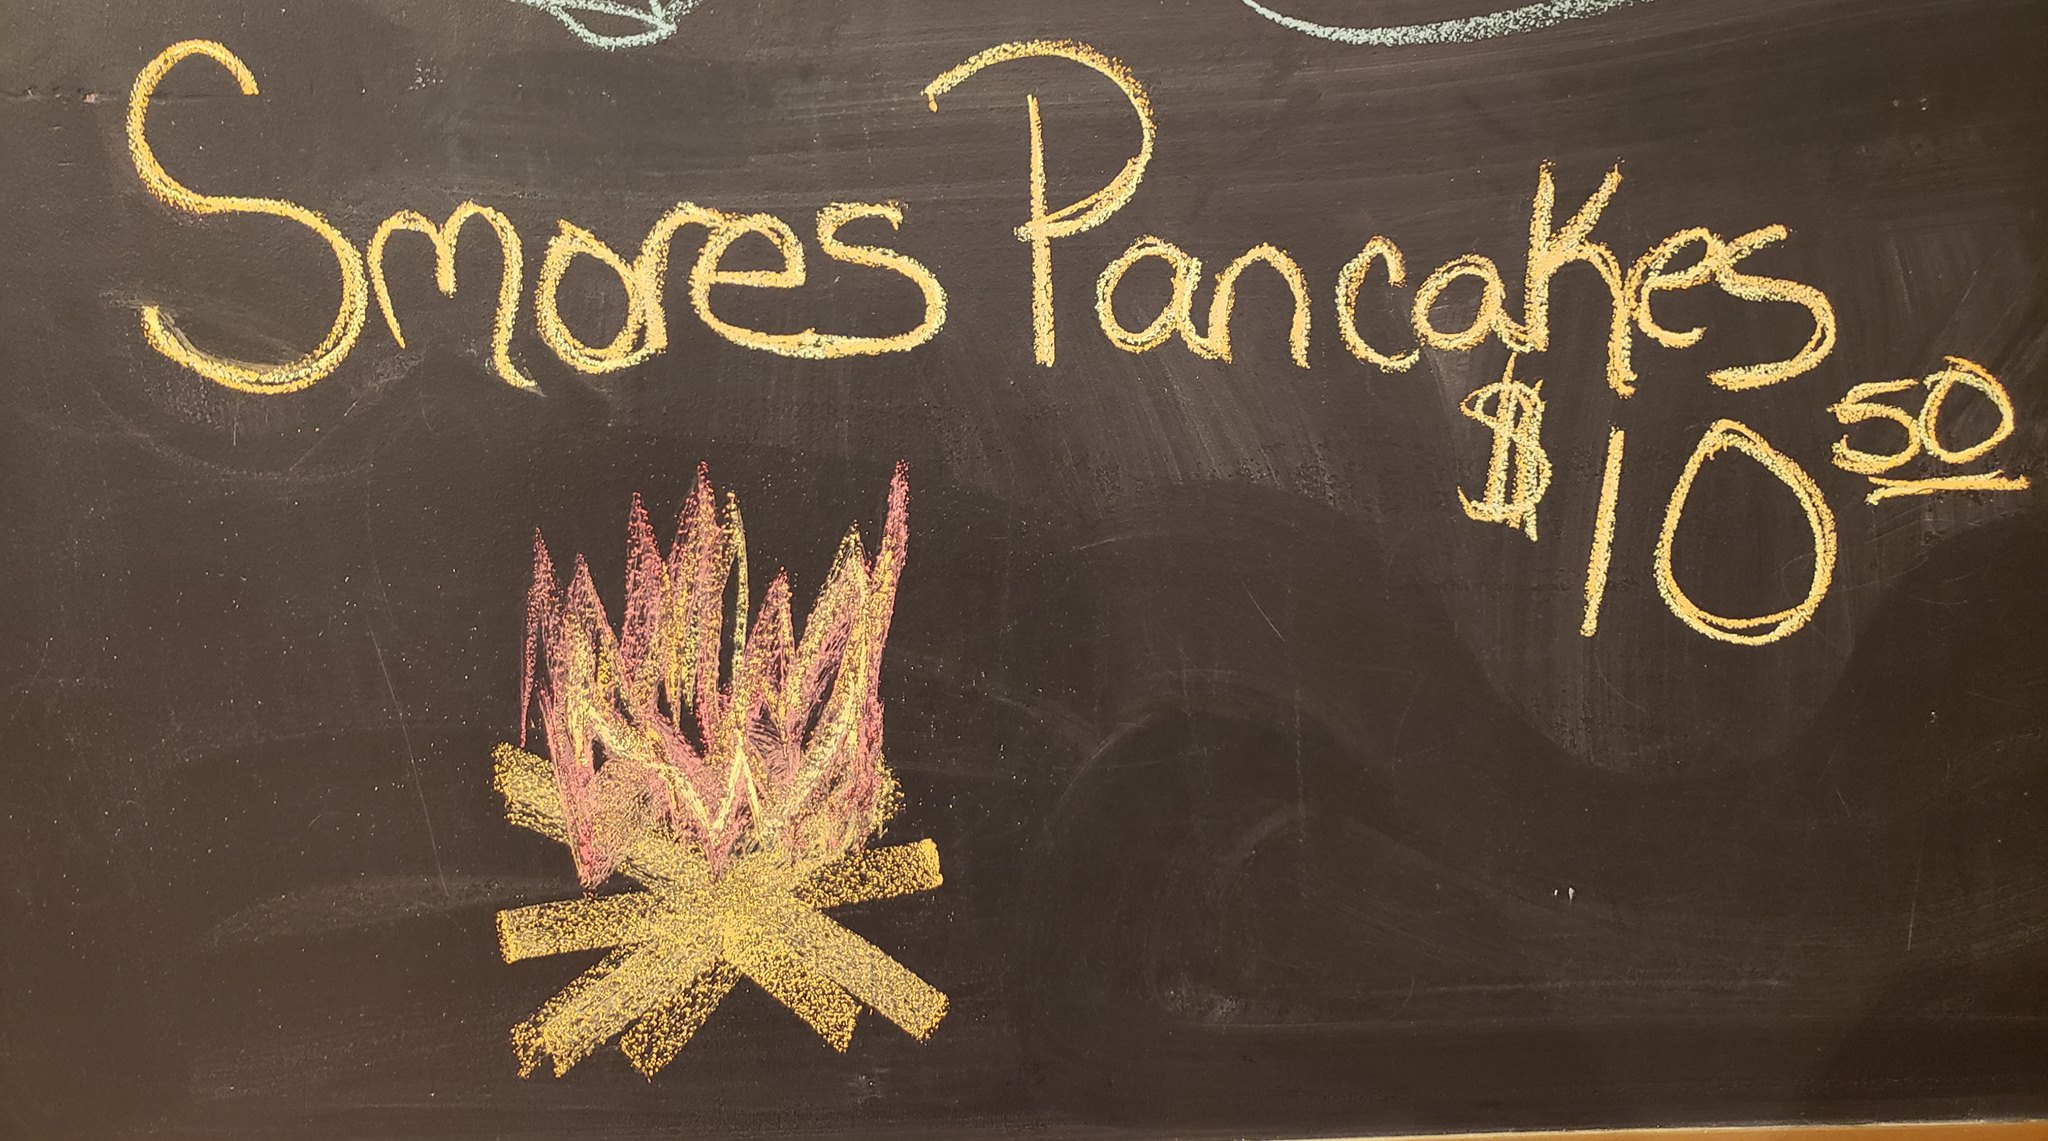 Smores Pancakes
$10 50